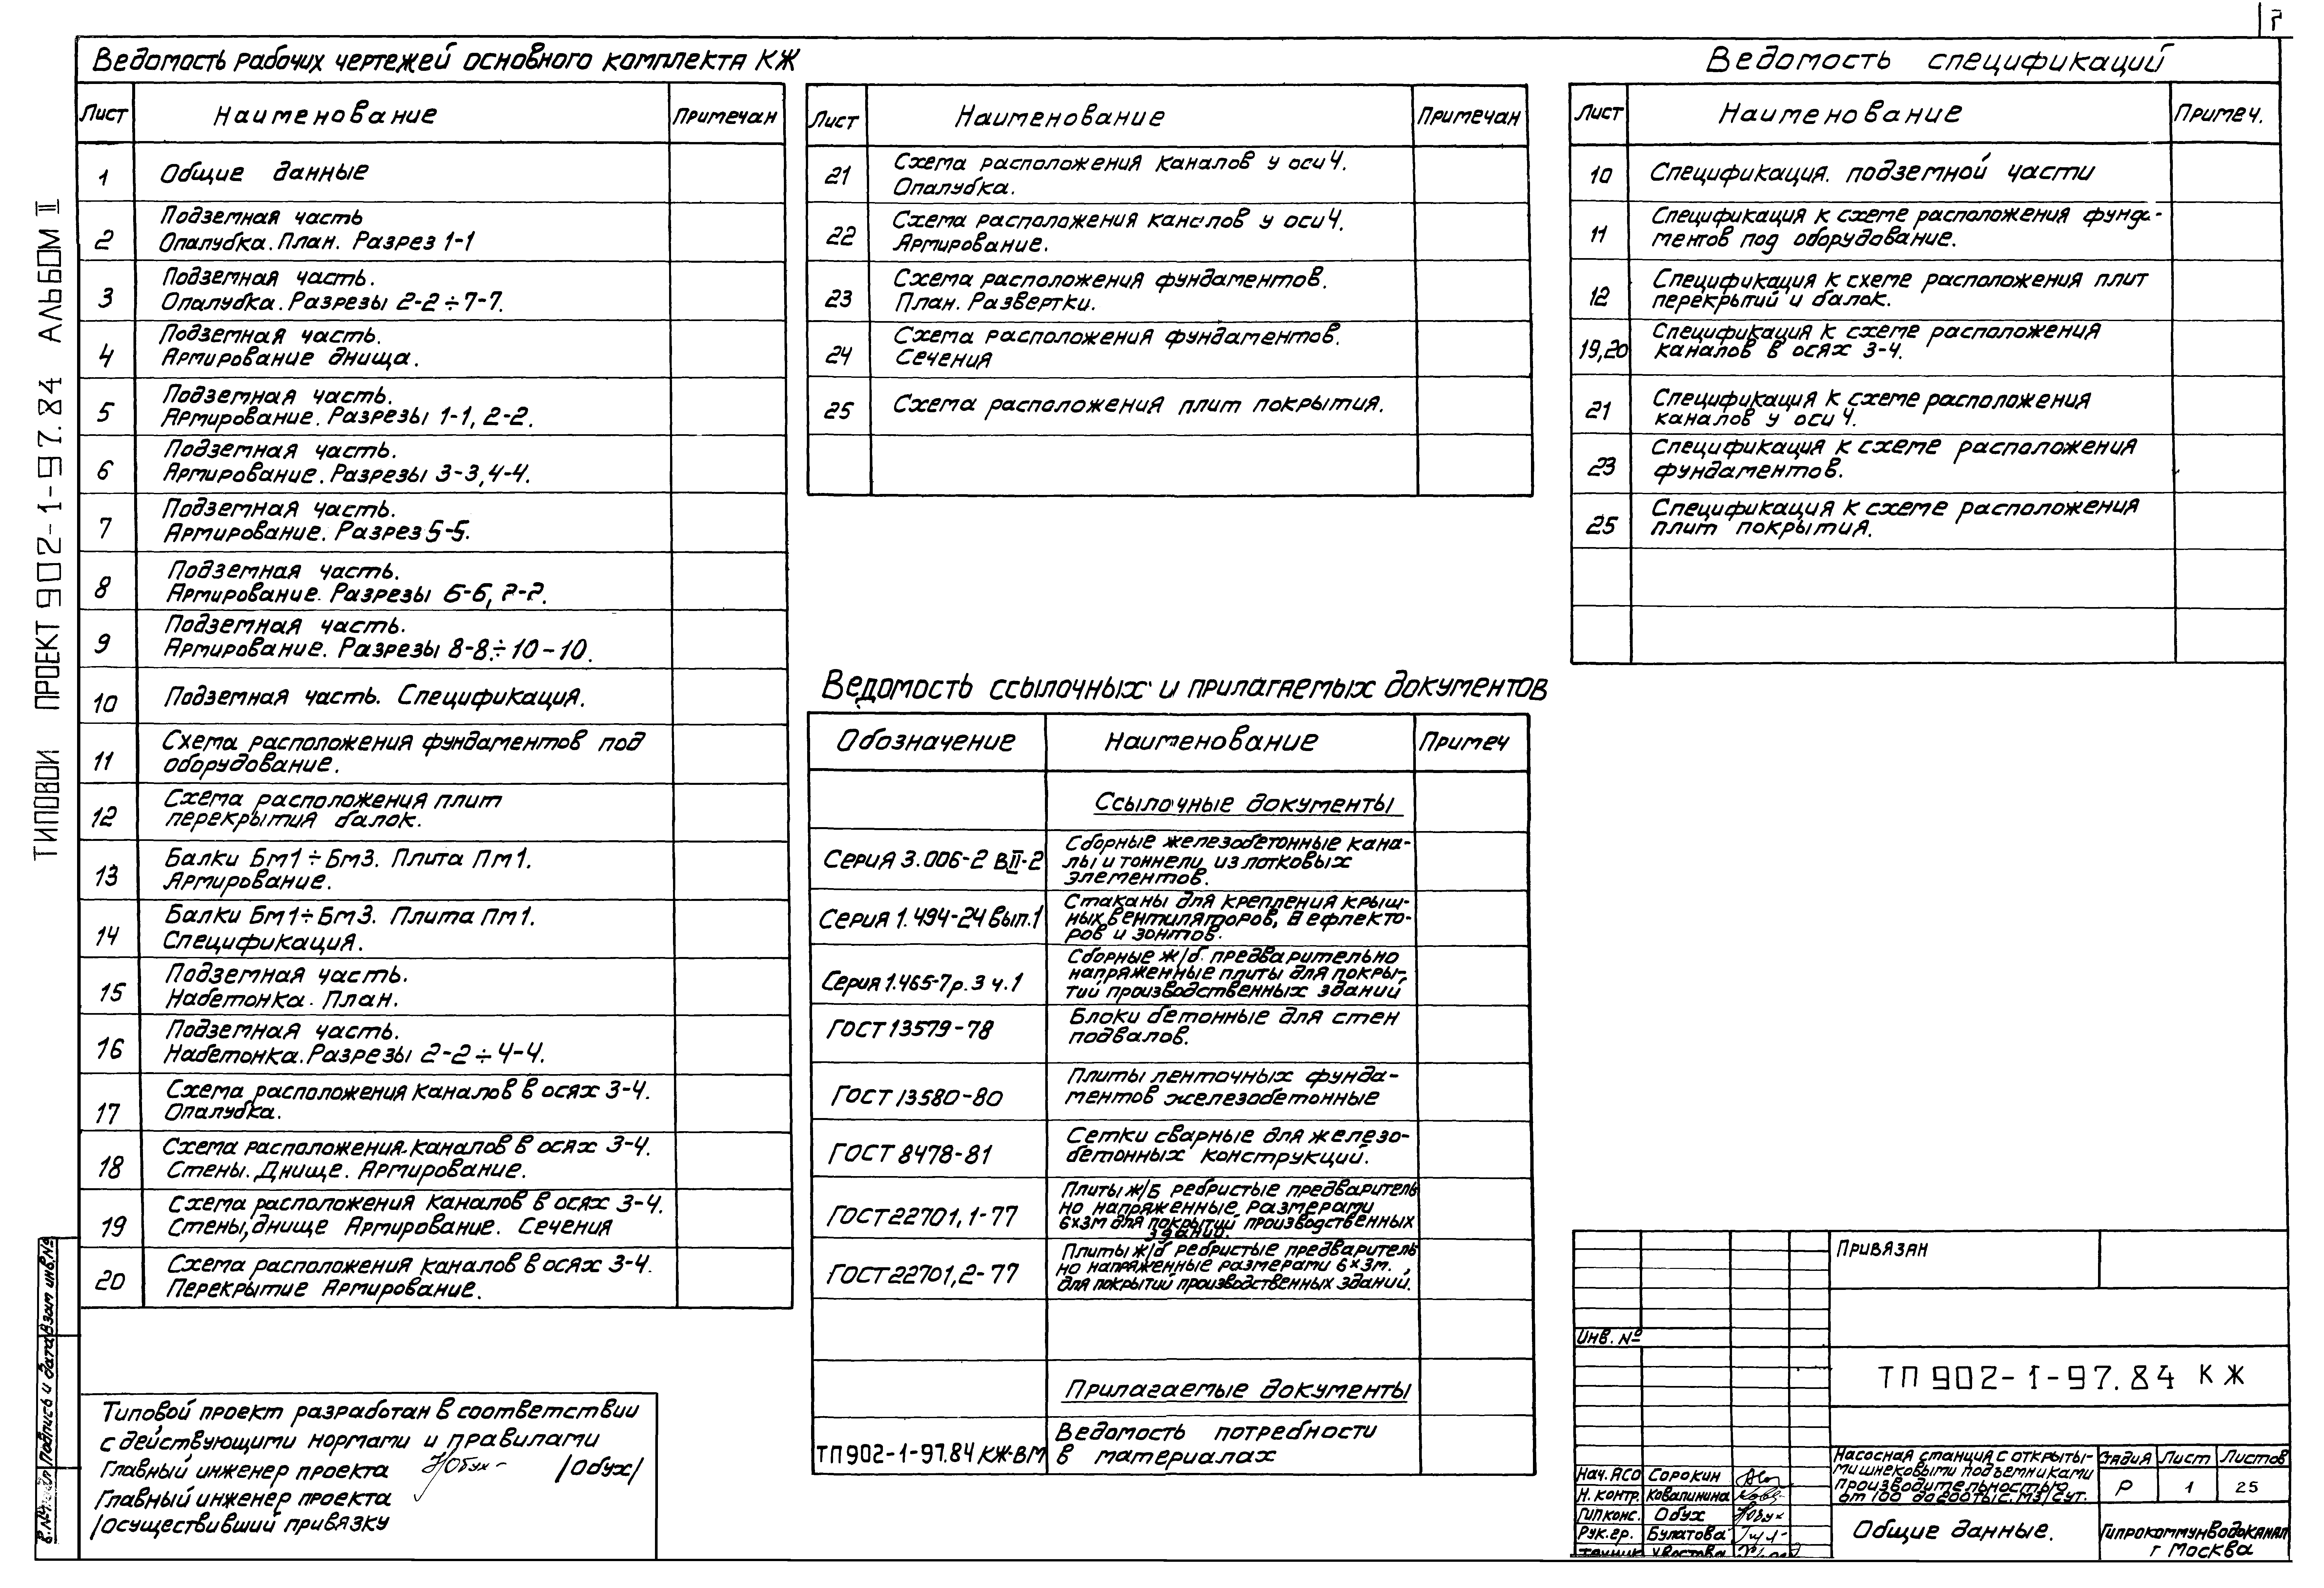 7
ТИПОВОЙ ПРОЕКТ 902-1-97.84 АЛЬБОМ II
Ведомость рабочих чертежей основного комплекта КЖ
Лист Наименование Примечан
1 Общие данные
2 Подземная часть
Опалубка. План. Разрез 1-1
3 Подземная часть.
Опалубка. Разрезы 2-2÷7-7.
4 Подземная часть.
Армирование днища.
5 Подземная часть.
Армирование. Разрезы 1-1, 2-2.
6 Подземная часть.
Армирование. Разрезы 3-3, 4-4.
7 Подземная часть.
Армирование. Разрез 5-5.
8 Подземная часть.
Армирование. Разрезы 6-6, 7-7.
9 Подземная часть.
Армирование. Разрезы 8-8.÷10-10.
10 Подземная часть. Спецификация.
11 Схема расположения фундаментов под
оборудование.
12 Схема расположения плит
перекрытия балок.
13 Балки Бм1÷Бм3. Плита Пм1.
Армирование.
14 Балки Бм1÷Бм3. Плита Пм1.
Спецификация.
15 Подземная часть.
Набетонка. План.
16 Подземная часть.
Набетонка. Разрезы 2-2÷4-4.
17 Схема расположения каналов в осях 3-4.
Опалубка.
18 Схема расположения каналов в осях 3-4.
Стены. Днище. Армирование.
19 Схема расположения каналов в осях 3-4.
Стены, днище Армирование. Сечения
20 Схема расположения каналов в осях 3-4.
Перекрытие Армирование.
Типовой проект разработан в соответствии
с действующими нормами и правилами
Главный инженер проекта /Обух/
Главный инженер проекта
/осуществивший привязку
Взам инв.№
Подпись и дата
Лист Наименование Примечан
21 Схема расположения каналов у оси 4.
Опалубка.
22 Схема расположения каналов у оси 4.
Армирование.
23 Схема расположения фундаментов.
План. Развертки.
24 Схема расположения фундаментов.
Сечения
25 Схема расположения плит покрытия.
Ведомость ссылочных и прилагаемых документов
Обозначение Наименование Примеч
Ссылочные документы
Серия 3.006-2 вII-2 Сборные железобетонные кана-
лы и тоннели из лотковых
элементов.
Серия 1.494-24 вып.1 Стаканы для крепления крыш-
ных вентиляторов, дефлекто-
ров и зонтов.
Серия 1.465-7р. 3 ч.1 Сборные ж/б предварительно
напряженные плиты для покры-
тий производственных зданий
ГОСТ 13579-78 Блоки бетонные для стен
подвалов.
ГОСТ 13580-80 Плиты ленточных фунда-
ментов железобетонные
ГОСТ 8478-81 Сетки сварные для железо-
бетонных конструкций.
ГОСТ 22701,1-77 Плиты ж/б ребристые предваритель
но напряженные размерами
6х3м для покрытий производственных
зданий.
ГОСТ 22701,2-77 Плиты ж/б ребристые предваритель
но напряженные размерами 6х3м.,
для покрытий производственных зданий.
Прилагаемые документы
ТП902-1-97.84 КЖ-ВМ Ведомость потребности
в материалах
Ведомость спецификаций
Лист Наименование Примеч.
10 Спецификация. подземной части
11 Спецификация к схеме расположения фунда-
ментов под оборудование.
12 Спецификация к схеме расположения плит
перекрытий и балок.
19,20 Спецификация к схеме расположения
каналов в осях 3-4.
21 Спецификация к схеме расположения
каналов у оси 4.
23 Спецификация к схеме расположения
фундаментов.
25 Спецификация к схеме расположения
плит покрытия.
Привязан
Инв. №
ТП 902-1-97.84 КЖ
Нач. АСО Сорокин
Н. контр. Ковалинина
Гип конс. Обух
Рук. гр. Булатова
техник Хвостова
Насосная станция с открыты-
ми шнековыми подъемниками
производительностью
от 100 до 200 тыс. м3/сут.
Стадия Лист Листов
Р 1 25
Общие данные.
Гипрокоммунводоканал
г Москва